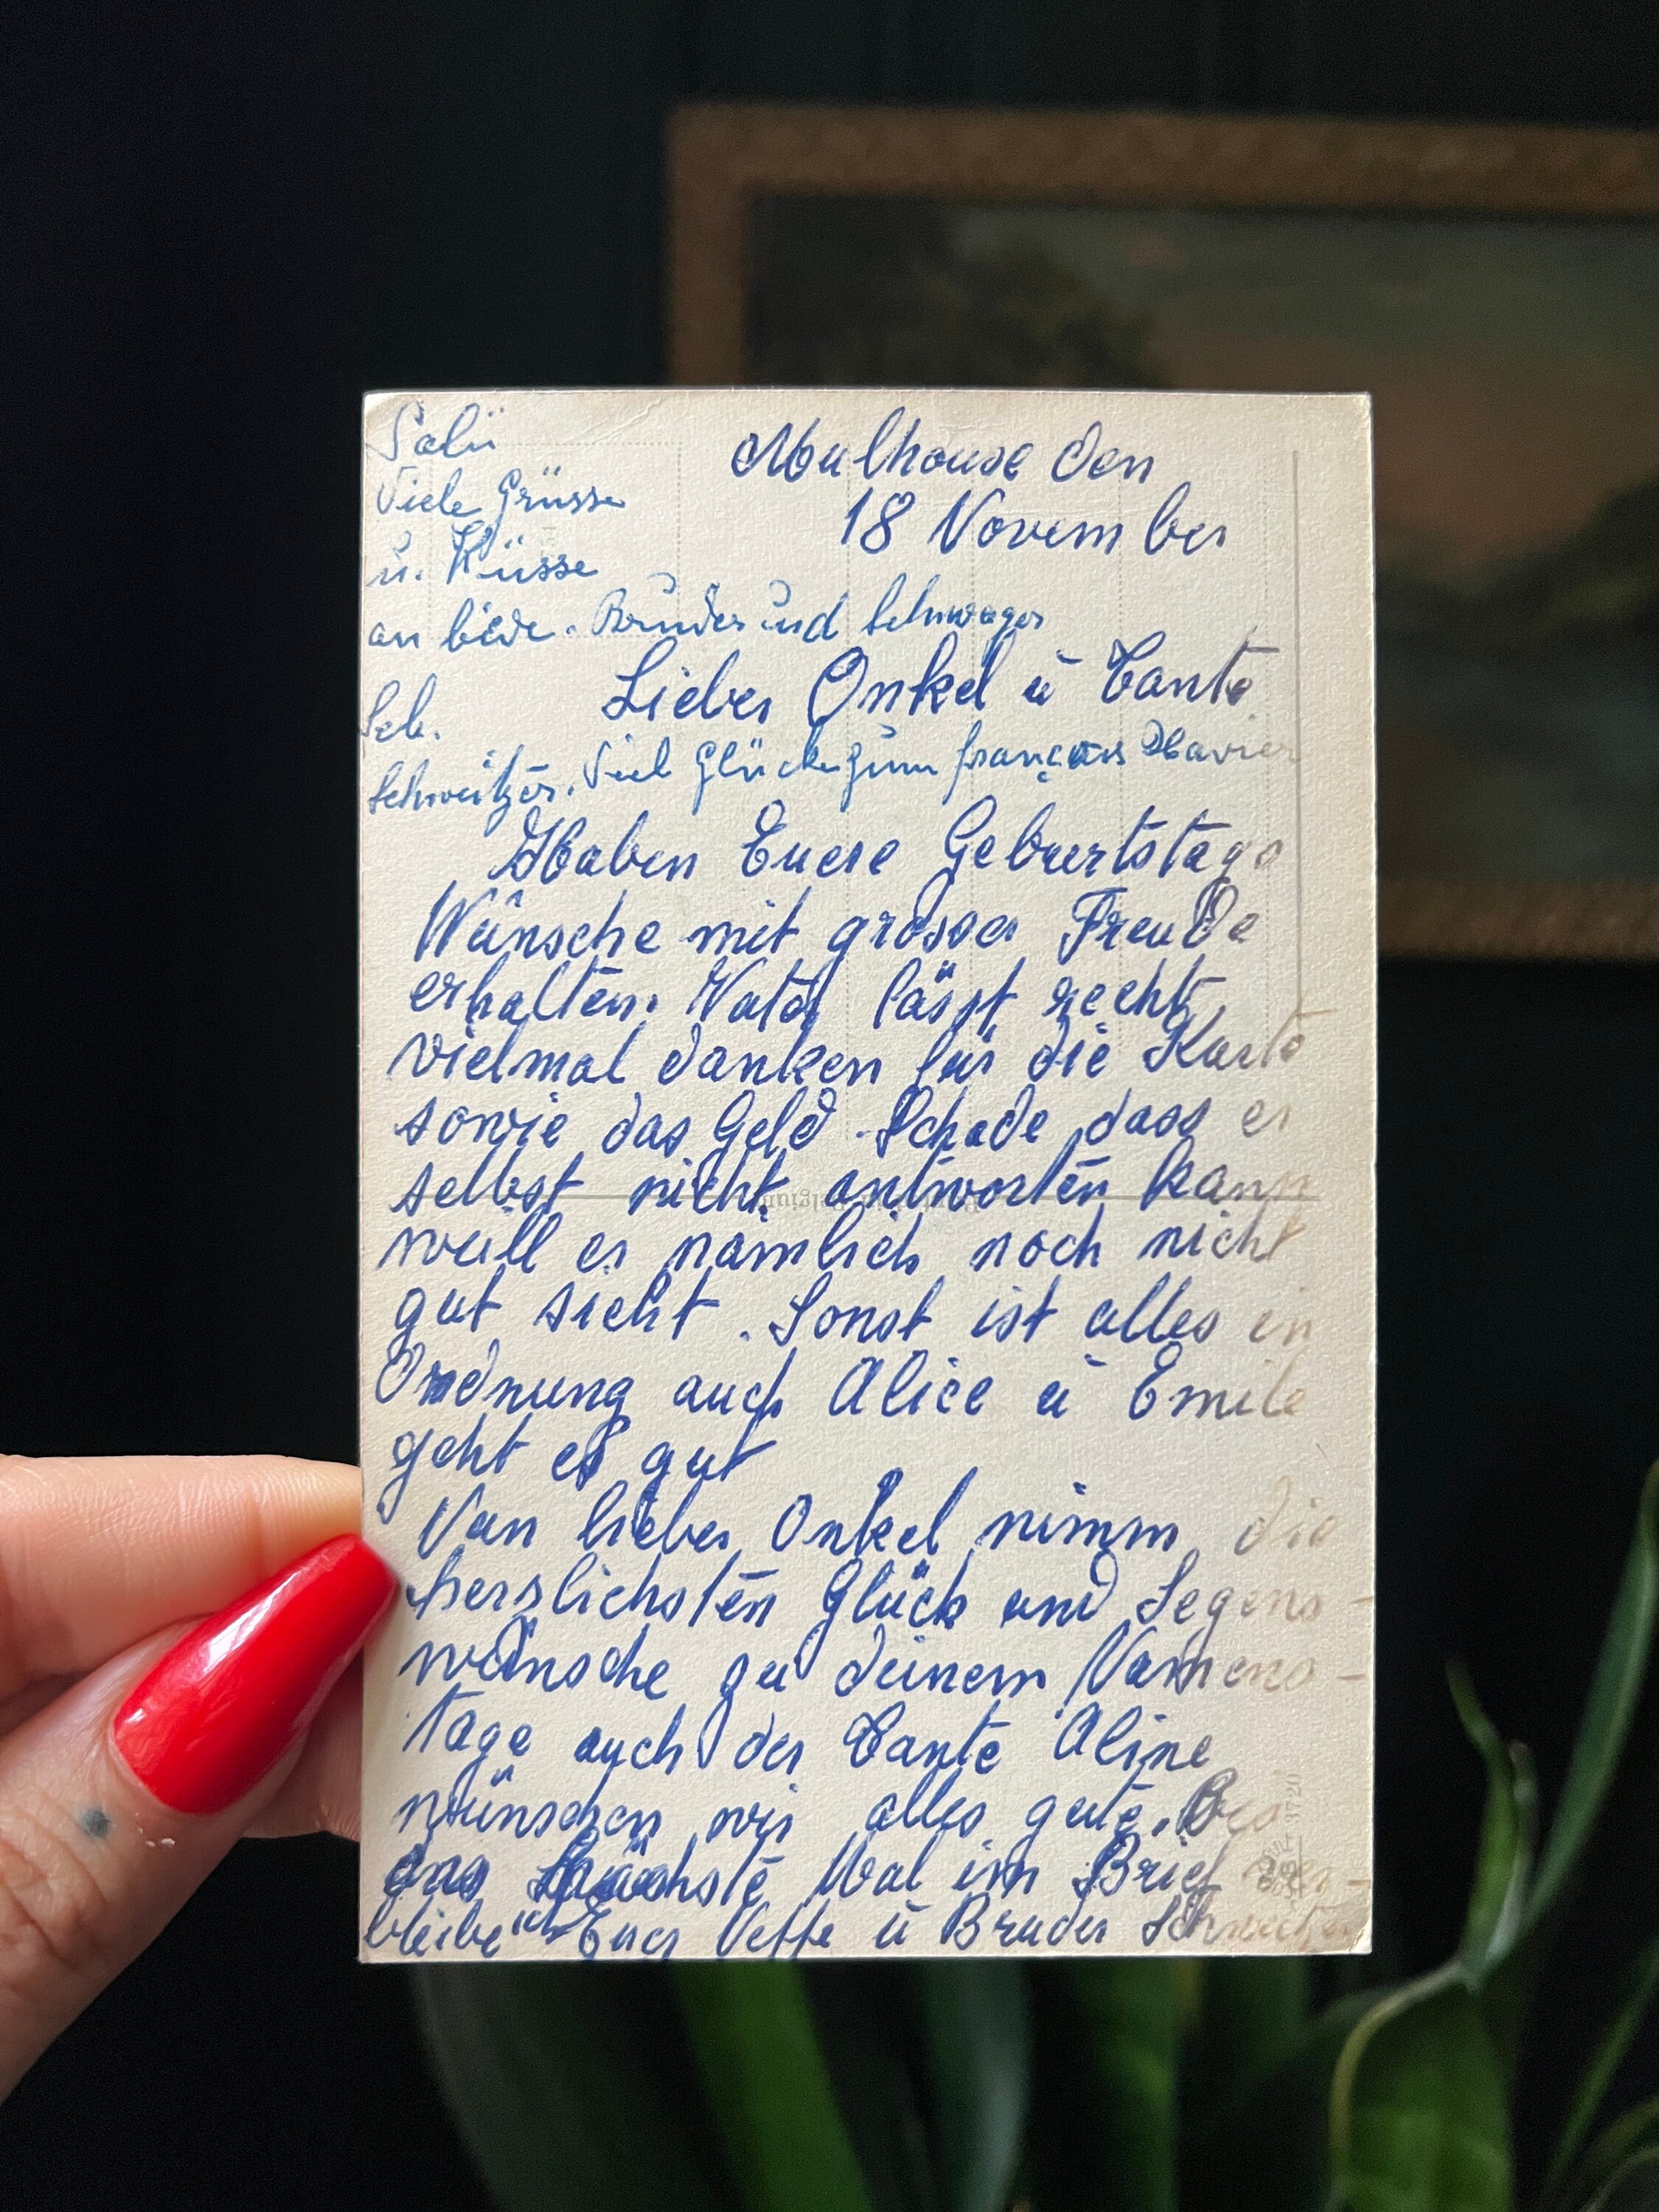 Salü
Viele Grüsse
u. Küsse
an beide. Bruder und Schwager
Seb.
Schweitzer. Viel Glück zum françois Xavier
Mulhouse den
18 November
Lieber Onkel u Tante
Haben Euere Geburtstags
Wünsche mit grosser Freude
erhalten. Vater lässt recht
vielmal danken für die Karte
sowie das Geld. Schade dass er
selbst nicht antworten kann
weill er nämlich noch nicht
gut sieht. Sonst ist alles in
Ordnung auch Alice u Emile
geht es gut
Nun lieber Onkel nimm die
herzlichsten Glück und Segens-
wünsche zu deinem Namens-
tage auch der Tante Aline
wünschen wir alles gute. Bis
das nächste Mal im Brief
bleibe ich Euer Neffe u Bruder Schweitzer